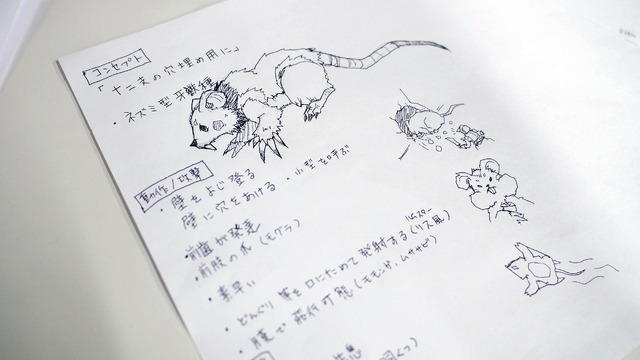 コンセプト
「十二支の穴埋め用に」
・ネズミ型牙獣種
動作/攻撃
・壁をよじ登る
壁に穴をあける ・小型を呼ぶ
・前歯が発達
・前肢の爪(モグラ)
・素早い
ハムスター
・どんぐり等を口にためて発射する(リス風)
・膜で飛行可能(モモンガ、ムササビ)